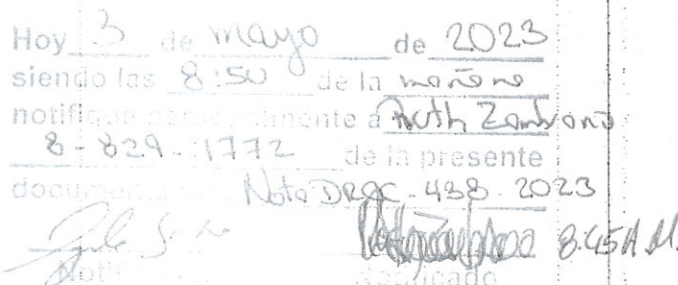 Hoy 3 de mayo de 2023
siendo las 8:50 de la mañana
notifique personalmente a Ruth Zambrano
8-829-1772 de la presente
documentación Nota DRGC-438-2023
8:45 A.M.
Notificado